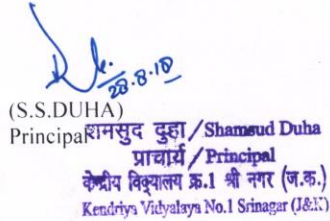 28.8.18
(S.S.DUHA)
Principal
शमसुद दुहा / Shamsud Duha
प्राचार्य / Principal
केन्द्रीय विद्यालय क्र.1 श्री नगर (ज.क.)
Kendriya Vidyalaya No.1 Srinagar (J&K)